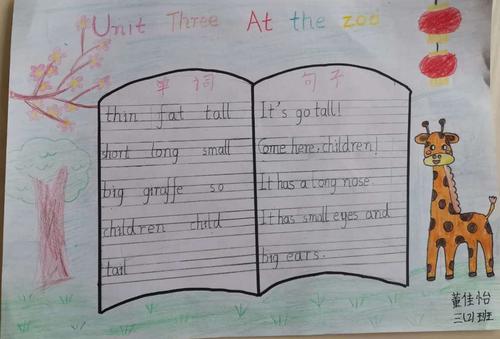 Unit Three At the zoo
单词
thin fat tall
short long small
big giraffe so
children child
tail
句子
It's go tall!
Come here, children!
It has a long nose.
It has small eyes and
big ears.
董佳怡
三(2)班